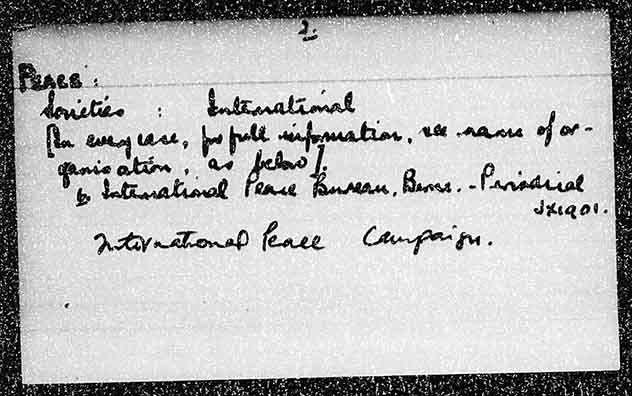 2.
PEACE :
Societies : International
[In every case, for full information, see name of or-
ganisation, as below].
International Peace Bureau, Berne. - Periodical
JX1901.
International Peace Campaign.